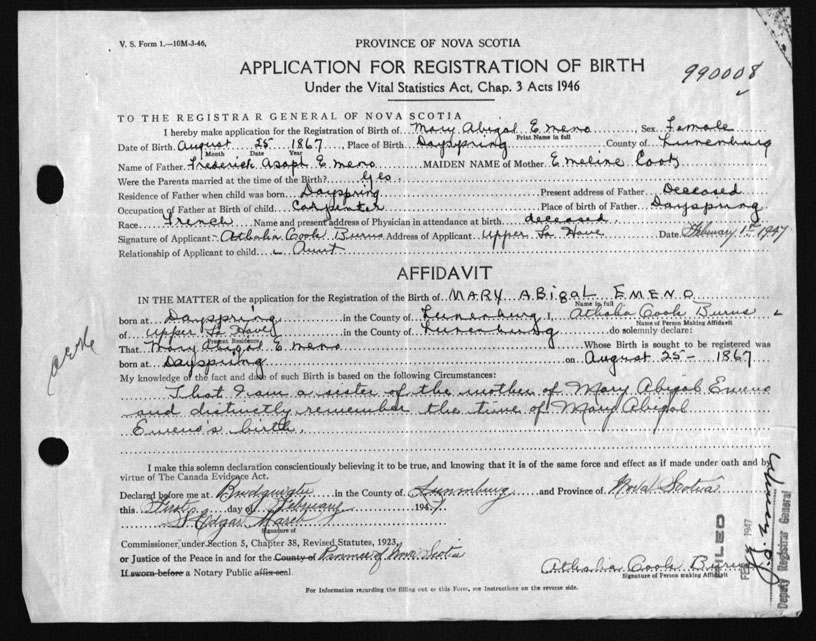 V. S. Form 1.—10M-3-46.
PROVINCE OF NOVA SCOTIA
APPLICATION FOR REGISTRATION OF BIRTH
990008
Under the Vital Statistics Act, Chap. 3 Acts 1946
TO THE REGISTRAR GENERAL OF NOVA SCOTIA
I hereby make application for the Registration of Birth of Mary Abigal Emeno, Sex Female
Print Name in full
Date of Birth August 25 1867 Place of Birth Dayspring County of Lunenburg
Month Date Year
Name of Father Frederick Asaph Emeno MAIDEN NAME of Mother Emeline Cook
Were the Parents married at the time of the Birth? Yes.
Residence of Father when child was born Dayspring Present address of Father Deceased
Occupation of Father at Birth of child Carpenter Place of birth of Father Dayspring
Race French Name and present address of Physician in attendance at birth deceased.
Signature of Applicant Athalia Cook Burns Address of Applicant Upper La Have Date February 1st 1947
Relationship of Applicant to child Aunt
AFFIDAVIT
IN THE MATTER of the application for the Registration of the Birth of MARY ABIGAL EMENO
Name in full
born at Dayspring in the County of Lunenburg I, Athalia Cook Burns
Name of Person Making Affidavit
of Upper La Have in the County of Lunenburg do solemnly declare:
Present Residence
That Mary Abigal Emeno Whose Birth is sought to be registered was
born at Dayspring on August 25- 1867
My knowledge of the fact and date of such Birth is based on the following Circumstances:
That I am a sister of the mother of Mary Abigal Emeno
and distinctly remember the time of Mary Abigal
Emeno's birth.
I make this solemn declaration conscientiously believing it to be true, and knowing that it is of the same force and effect as if made under oath and by
virtue of The Canada Evidence Act.
Declared before me at Bridgewater in the County of Lunenburg and Province of Nova Scotia
this First day of February 1947.
Edgar March
Signature of
Commissioner under Section 5, Chapter 38, Revised Statutes, 1923,
or Justice of the Peace in and for the County of Province of Nova Scotia
If sworn before a Notary Public affix seal.
Athalia Cook Burns
Signature of Person making Affidavit
For Information regarding the filling out of this Form, see Instructions on the reverse side.
FILED
1947
Deputy Registrar General